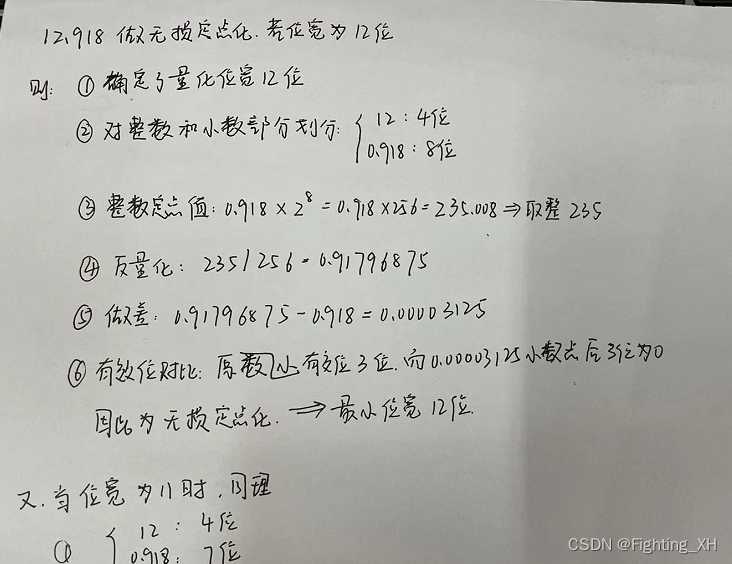 12.918 做无损定点化. 若位宽为12位
则: ① 确定了量化位宽12位
② 对整数和小数部分划分: { 12 : 4位
0.918 : 8位
③ 整数定点值: 0.918 × 2⁸ = 0.918 × 256 = 235.008 ⇒ 取整 235
④ 反量化: 235/256 = 0.91796875
⑤ 做差: 0.91796875 - 0.918 = 0.00003125
⑥ 有效位对比: 原数小有效位3位. 而0.00003125小数点后3位为0
因此为无损定点化. ⇒ 最小位宽12位.
又. 当位宽为11时, 同理
① { 12 : 4位
0.918 : 7位
CSDN @Fighting_XH